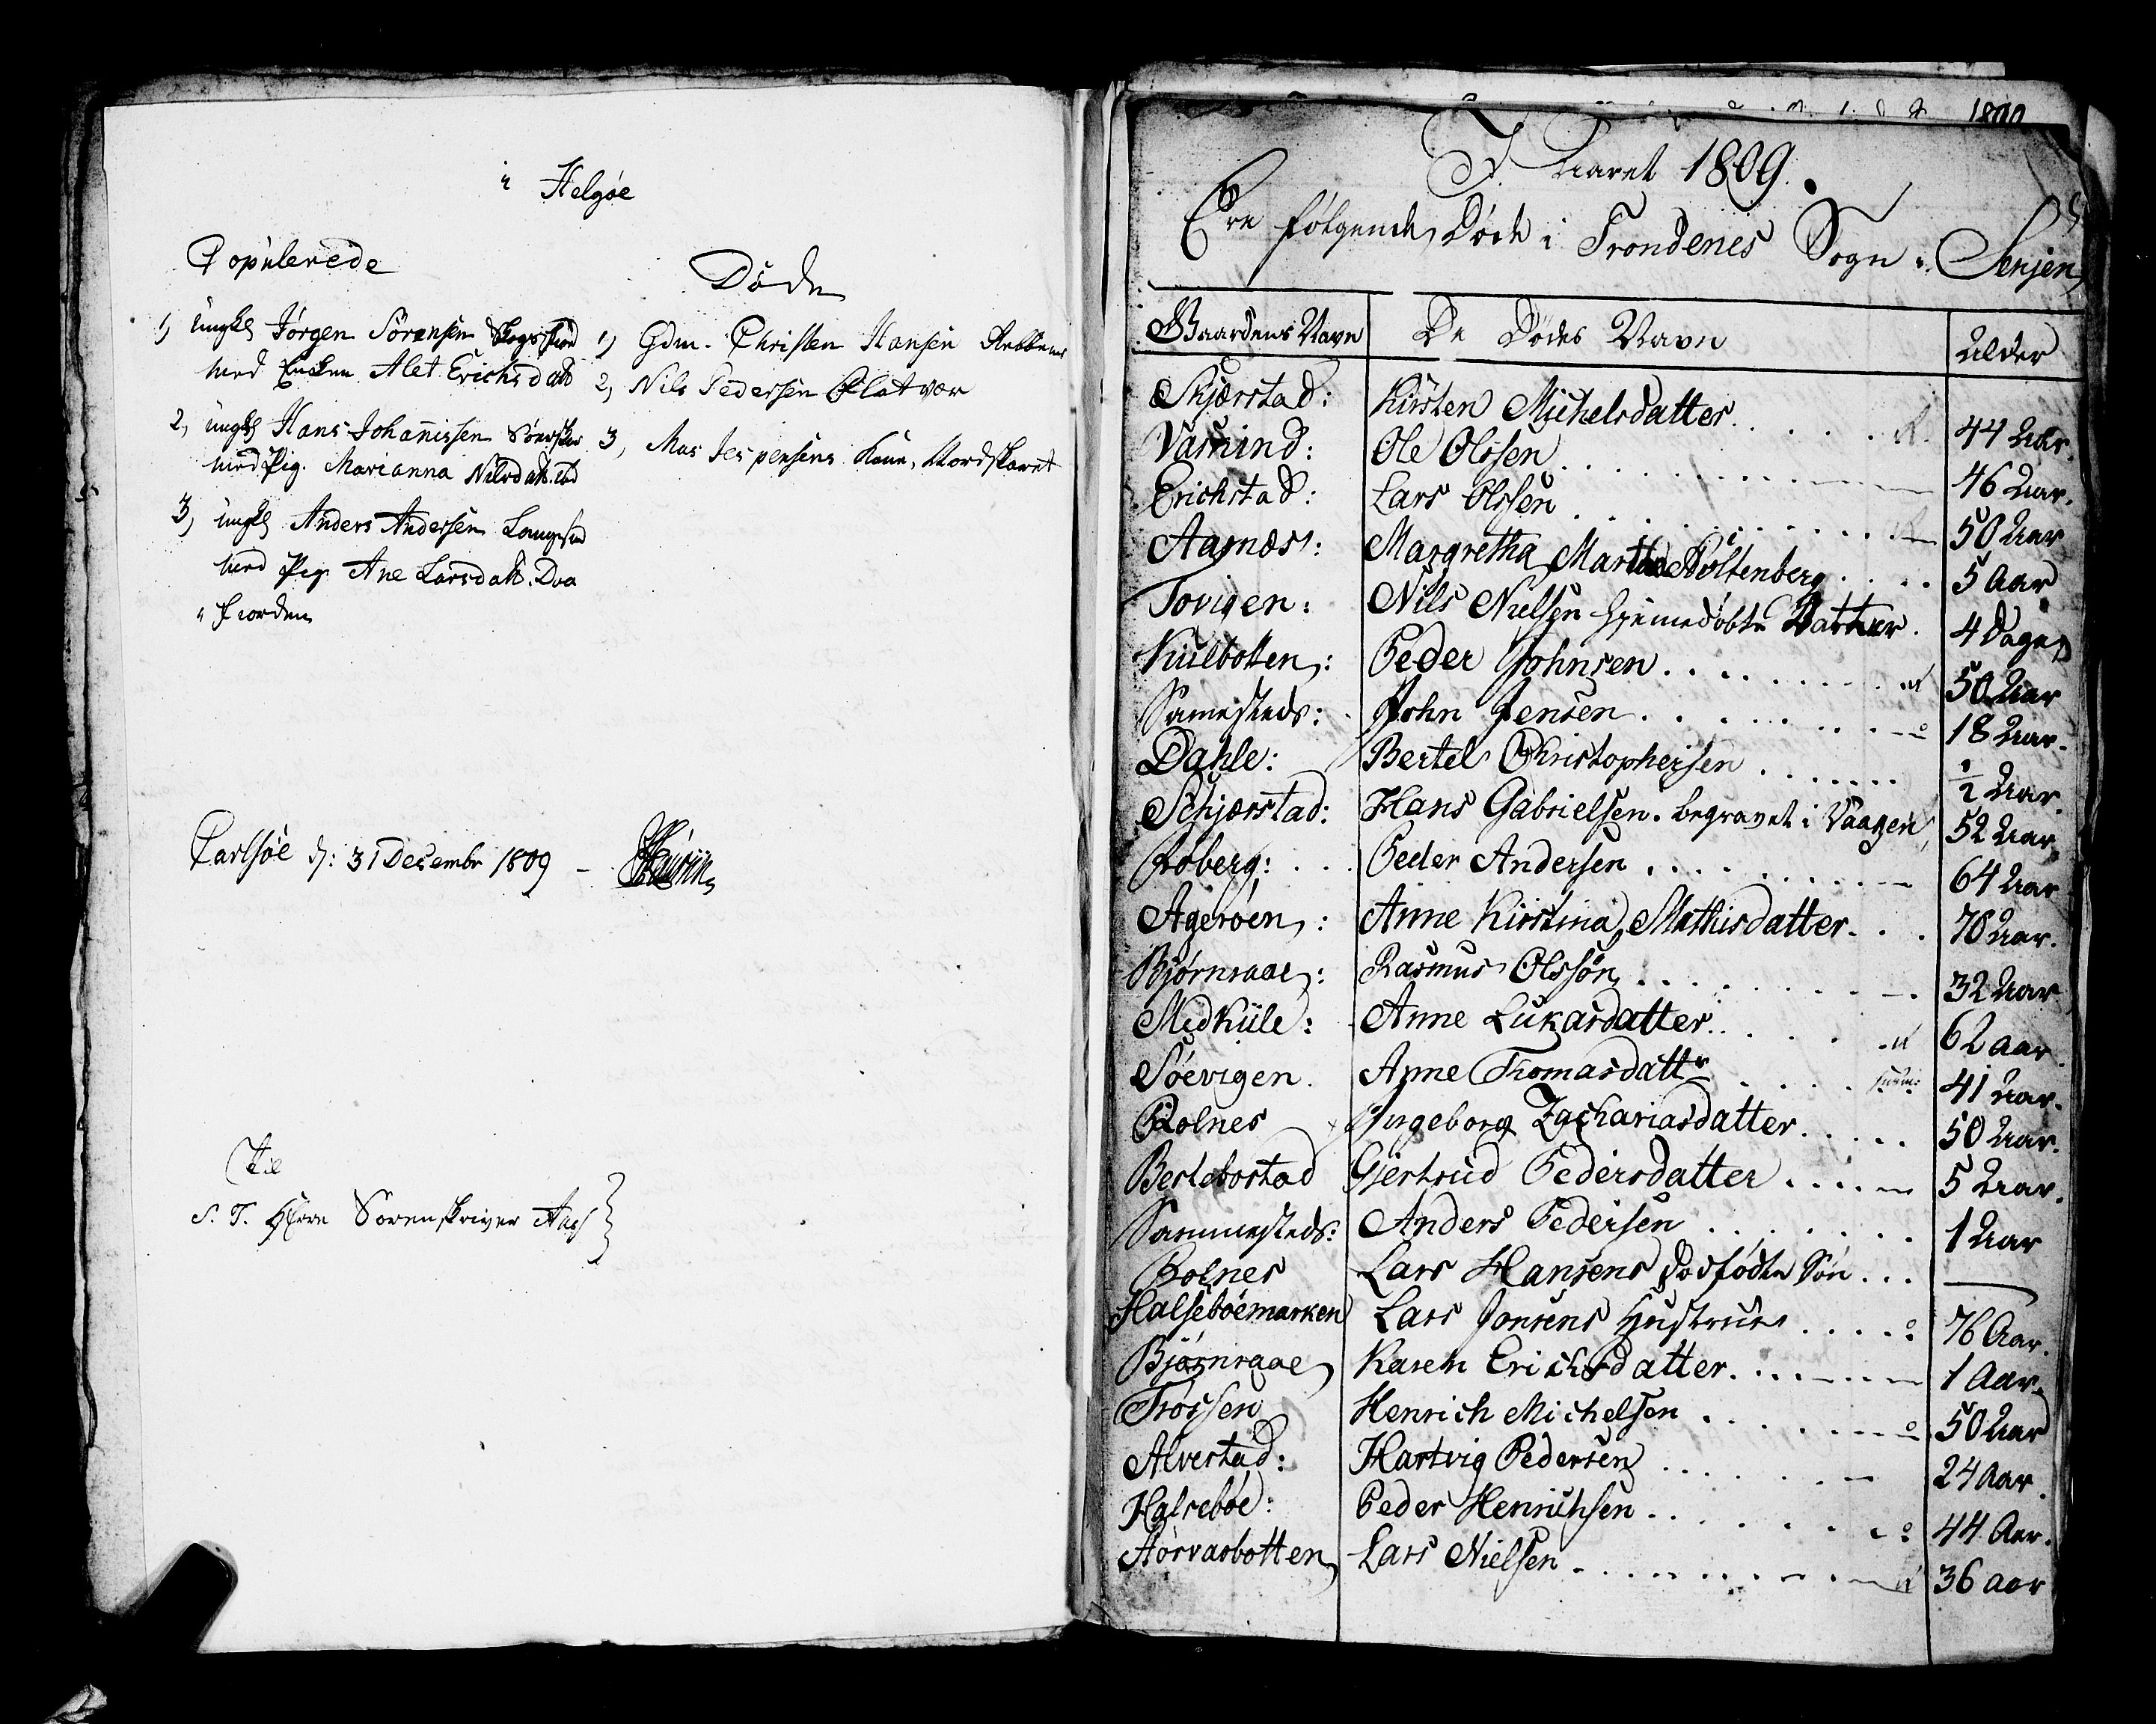 i Helgøe
Copulerede
1) ungk Jørgen Sörensen
med Enken Alet Erichsdatt
2, ungk Hans Johannissen
med Pig. Marianna Nilsdatt.
3, ungk Anders Andersen
med Pig Ane Larsdatt.
i Fiorden
Døde
1) Gdm. Christen Hansen
2, Nils Pedersen Flatvær
3, Mas Jespersens Kone, Nordskaret
Carlsöe d: 31 Decembr 1809 –
Til
S. T. Herr Sorenskriver Aas
I Aaret 1809.
Ere følgende Døde i Trondenes Sogn i Senjen
Gaardens Navn | De Dødes Navn | Alder
Skjærstad: Kirsten Michelsdatter 44 Aar.
Vasmind: Ole Olssen 46 Aar.
Erichstad: Lars Olssen 50 Aar
Aarnæs: Margretha Martha Holtenberg 5 Aar
Tovigen: Nils Nielsen hjemedøbte Datter 4 Dage
Kiilbotten: Peder Johnsen 50 Aar
Samesteds: John Jensen 18 Aar.
Dahle: Bertel Christophersen ½ Aar.
Schjærstad: Hans Gabrielsen. begravet i Vaagen 52 Aar
Roberg: Peder Andersen 64 Aar
Agerøen: Anne Kirstina Mathisdatter 70 Aar.
Bjørnraae: Rasmus Olssøn 32 Aar
Medkiile: Anne Lukasdatter 62 aar
Søevigen. Anne Thomasdattr 41 Aar.
Rolnes Ingeborg Zachariasdatter 50 Aar.
Berlebostad Gjertrud Pedersdatter 5 Aar.
Sammesteds: Anders Pedersen 1 Aar
Rolnes Lars Hansens dødfødte Søn —
Halsebøemarken Lars Jonsens Hustrue 76 Aar.
Bjørnraae Karen Erichsdatter 1 Aar.
Trøssen Henrich Michelsen 50 Aar
Alvestad: Hartvig Pedersen 24 Aar.
Halsebøe: Peder Henrichsen 44 Aar.
Størvasbotten Lars Nielsen 36 aar